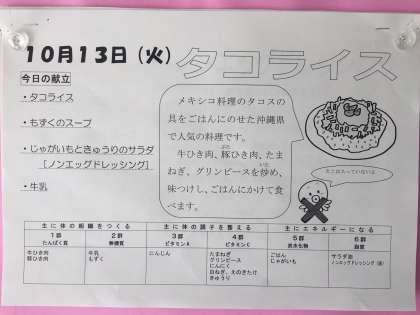 10月13日（火）
タコライス
今日の献立
・タコライス
・もずくのスープ
・じゃがいもときゅうりのサラダ
［ノンエッグドレッシング］
・牛乳
メキシコ料理のタコスの
具をごはんにのせた沖縄県
で人気の料理です。
牛ひき肉、豚ひき肉、たま
ねぎ、グリンピースを炒め、
味つけし、ごはんにかけて食
べます。
タコは入っていないよ
主に体の組織をつくる
主に体の調子を整える
主にエネルギーになる
1群 2群 3群 4群 5群 6群
たんぱく質 無機質 ビタミンA ビタミンC 炭水化物 脂質
牛ひき肉
豚ひき肉
牛乳
もずく
にんじん
たまねぎ
グリンピース
にんにく
白ねぎ、えのきたけ
きゅうり
ごはん
じゃがいも
サラダ油
ノンエッグドレッシング